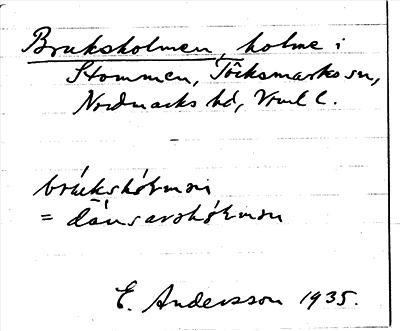 Bruksholmen, holme i
Stommen, Töcksmarks sn,
Nordmarks hd, Vrml l.
brúkshólmơn
= dánsarshólmơn
E. Andersson 1935.